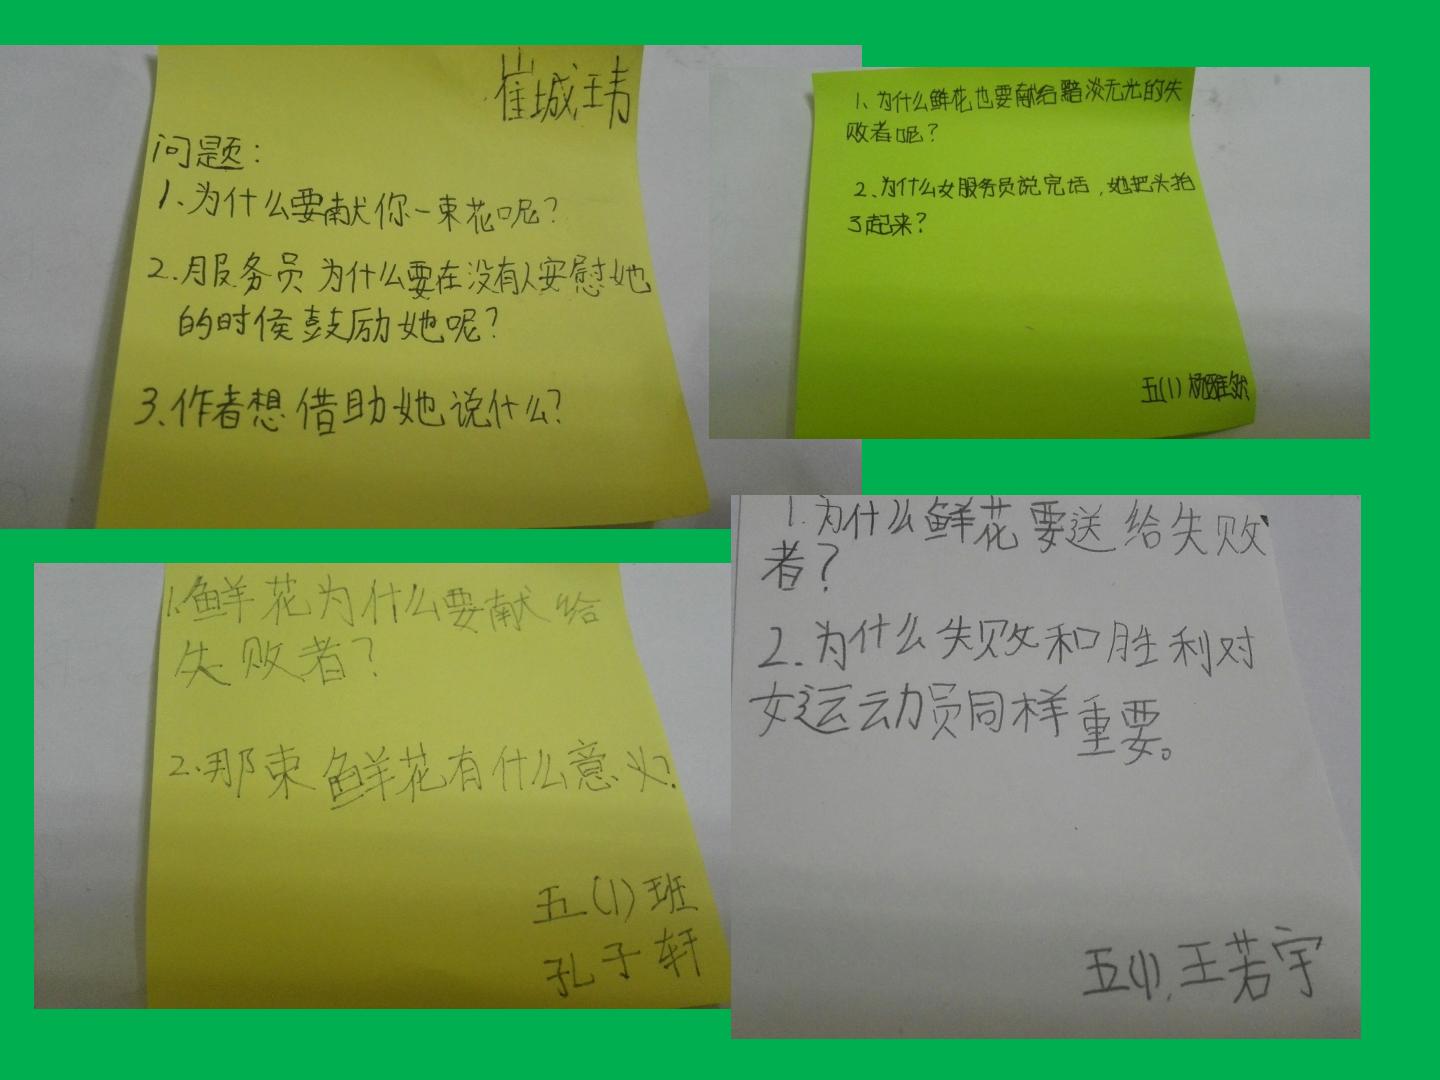 崔城玮
问题：
1、为什么要献你一束花呢？
2.服务员为什么要在没有人安慰她
的时候鼓励她呢？
3.作者想借助她说什么？
1、为什么鲜花也要献给黯淡无光的失
败者呢？
2、为什么女服务员说完话，她把头抬
了起来？
五(1) 杨雅
1.鲜花为什么要献给
失败者？
2.那束鲜花有什么意义？
五(1)班
孔子轩
1.为什么鲜花要送给失败
者？
2.为什么失败和胜利对
女运动员同样重要。
五(1).王若宇